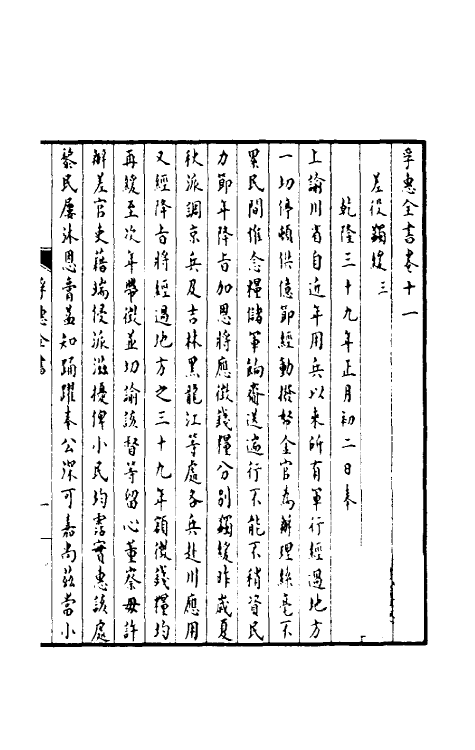 孚惠全書卷十一
差役蠲緩三
乾隆三十九年正月初二日奉
上諭川省自近年用兵以來所有軍行經過地方
一切停頓供億節經動撥帑金官為辦理絲毫不
累民間惟念糧儲軍餉齎送遄行不能不稍資民
力節年降旨加恩將應徵錢糧分別蠲緩昨歲夏
秋派調京兵及吉林黑龍江等處各兵赴川應用
又經降旨將經過地方之三十九年額徵錢糧均
再緩至次年帶徵並切諭該督等留心董察毋許
辦差官吏藉端侵派滋擾俾小民均霑實惠該處
黎民屢沐恩膏益知踴躍奉公深可嘉尚茲當小
孚惠全書
一